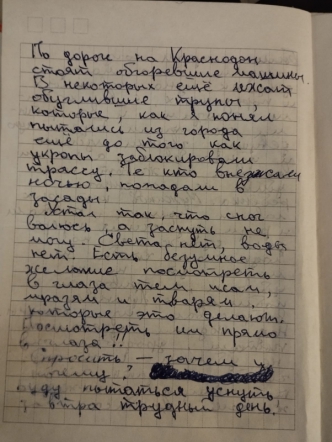 По дороге на Краснодон
стоят обгоревшие машины.
В некоторых ещё лежат
обуглившие трупы,
которые, как я понял
пытались из города
ещё до того как
укропы заблокировали
трассу. Те кто выезжали
ночью, попадали в
засады.
Устал так, что с ног
валюсь, а заснуть не
могу. Света нет, воды
нет. Есть безумное
желание посмотреть
в глаза тем псам,
мразям и тварям.
которые это делают.
Посмотреть им прямо
в глаза!!
Спросить – зачем и
Буду пытаться уснуть
завтра трудный день.